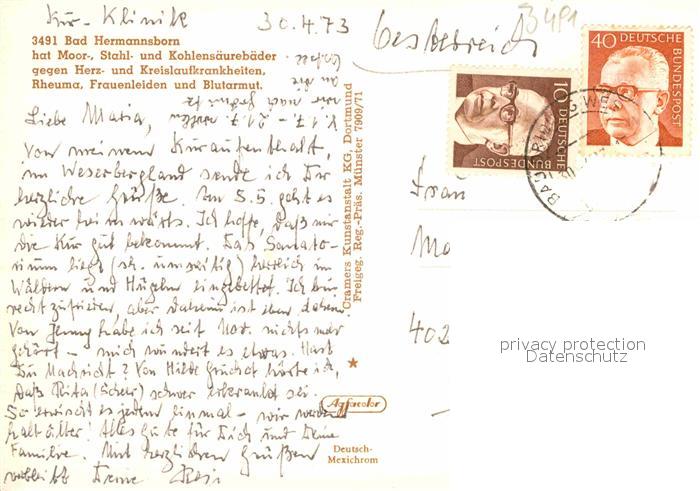 Kur-Klinik 30.4.73
3491 Bad Hermannsborn
hat Moor-, Stahl- und Kohlensäurebäder
gegen Herz- und Kreislaufkrankheiten,
Rheuma, Frauenleiden und Blutarmut.
Liebe Maria,
Von meinem Kuraufenthalt,
im Weserbergland sende ich Dir
herzliche Grüße. Am 5.5. geht es
wieder heimwärts. Ich hoffe, daß mir
die Kur gut bekommt. Das Sanato-
rium liegt (sh. umseitig) herrlich in
Wäldern und Hügeln eingebettet. Ich bin
recht zufrieden, aber daheim ist eben daheim.
Von Jenny habe ich seit Nov. nichts mehr
gehört - mich wundert es etwas. Hast
Du Nachricht? Von Hilde hörte ich,
daß Rita schwer erkrankt sei.
So erwischt es jeden einmal - wir werden
halt älter! Alles Gute für Dich und Deine
Familie. Mit herzlichen Grüßen
verbleibt Deine
Cramers Kunstanstalt KG, Dortmund
Freigeg. Reg.-Präs. Münster 7909/71
Agfacolor
Deutsch-
Mexichrom
3491
10 DEUTSCHE
BUNDESPOST
40 DEUTSCHE
BUNDESPOST
Frau
402
privacy protection
Datenschutz